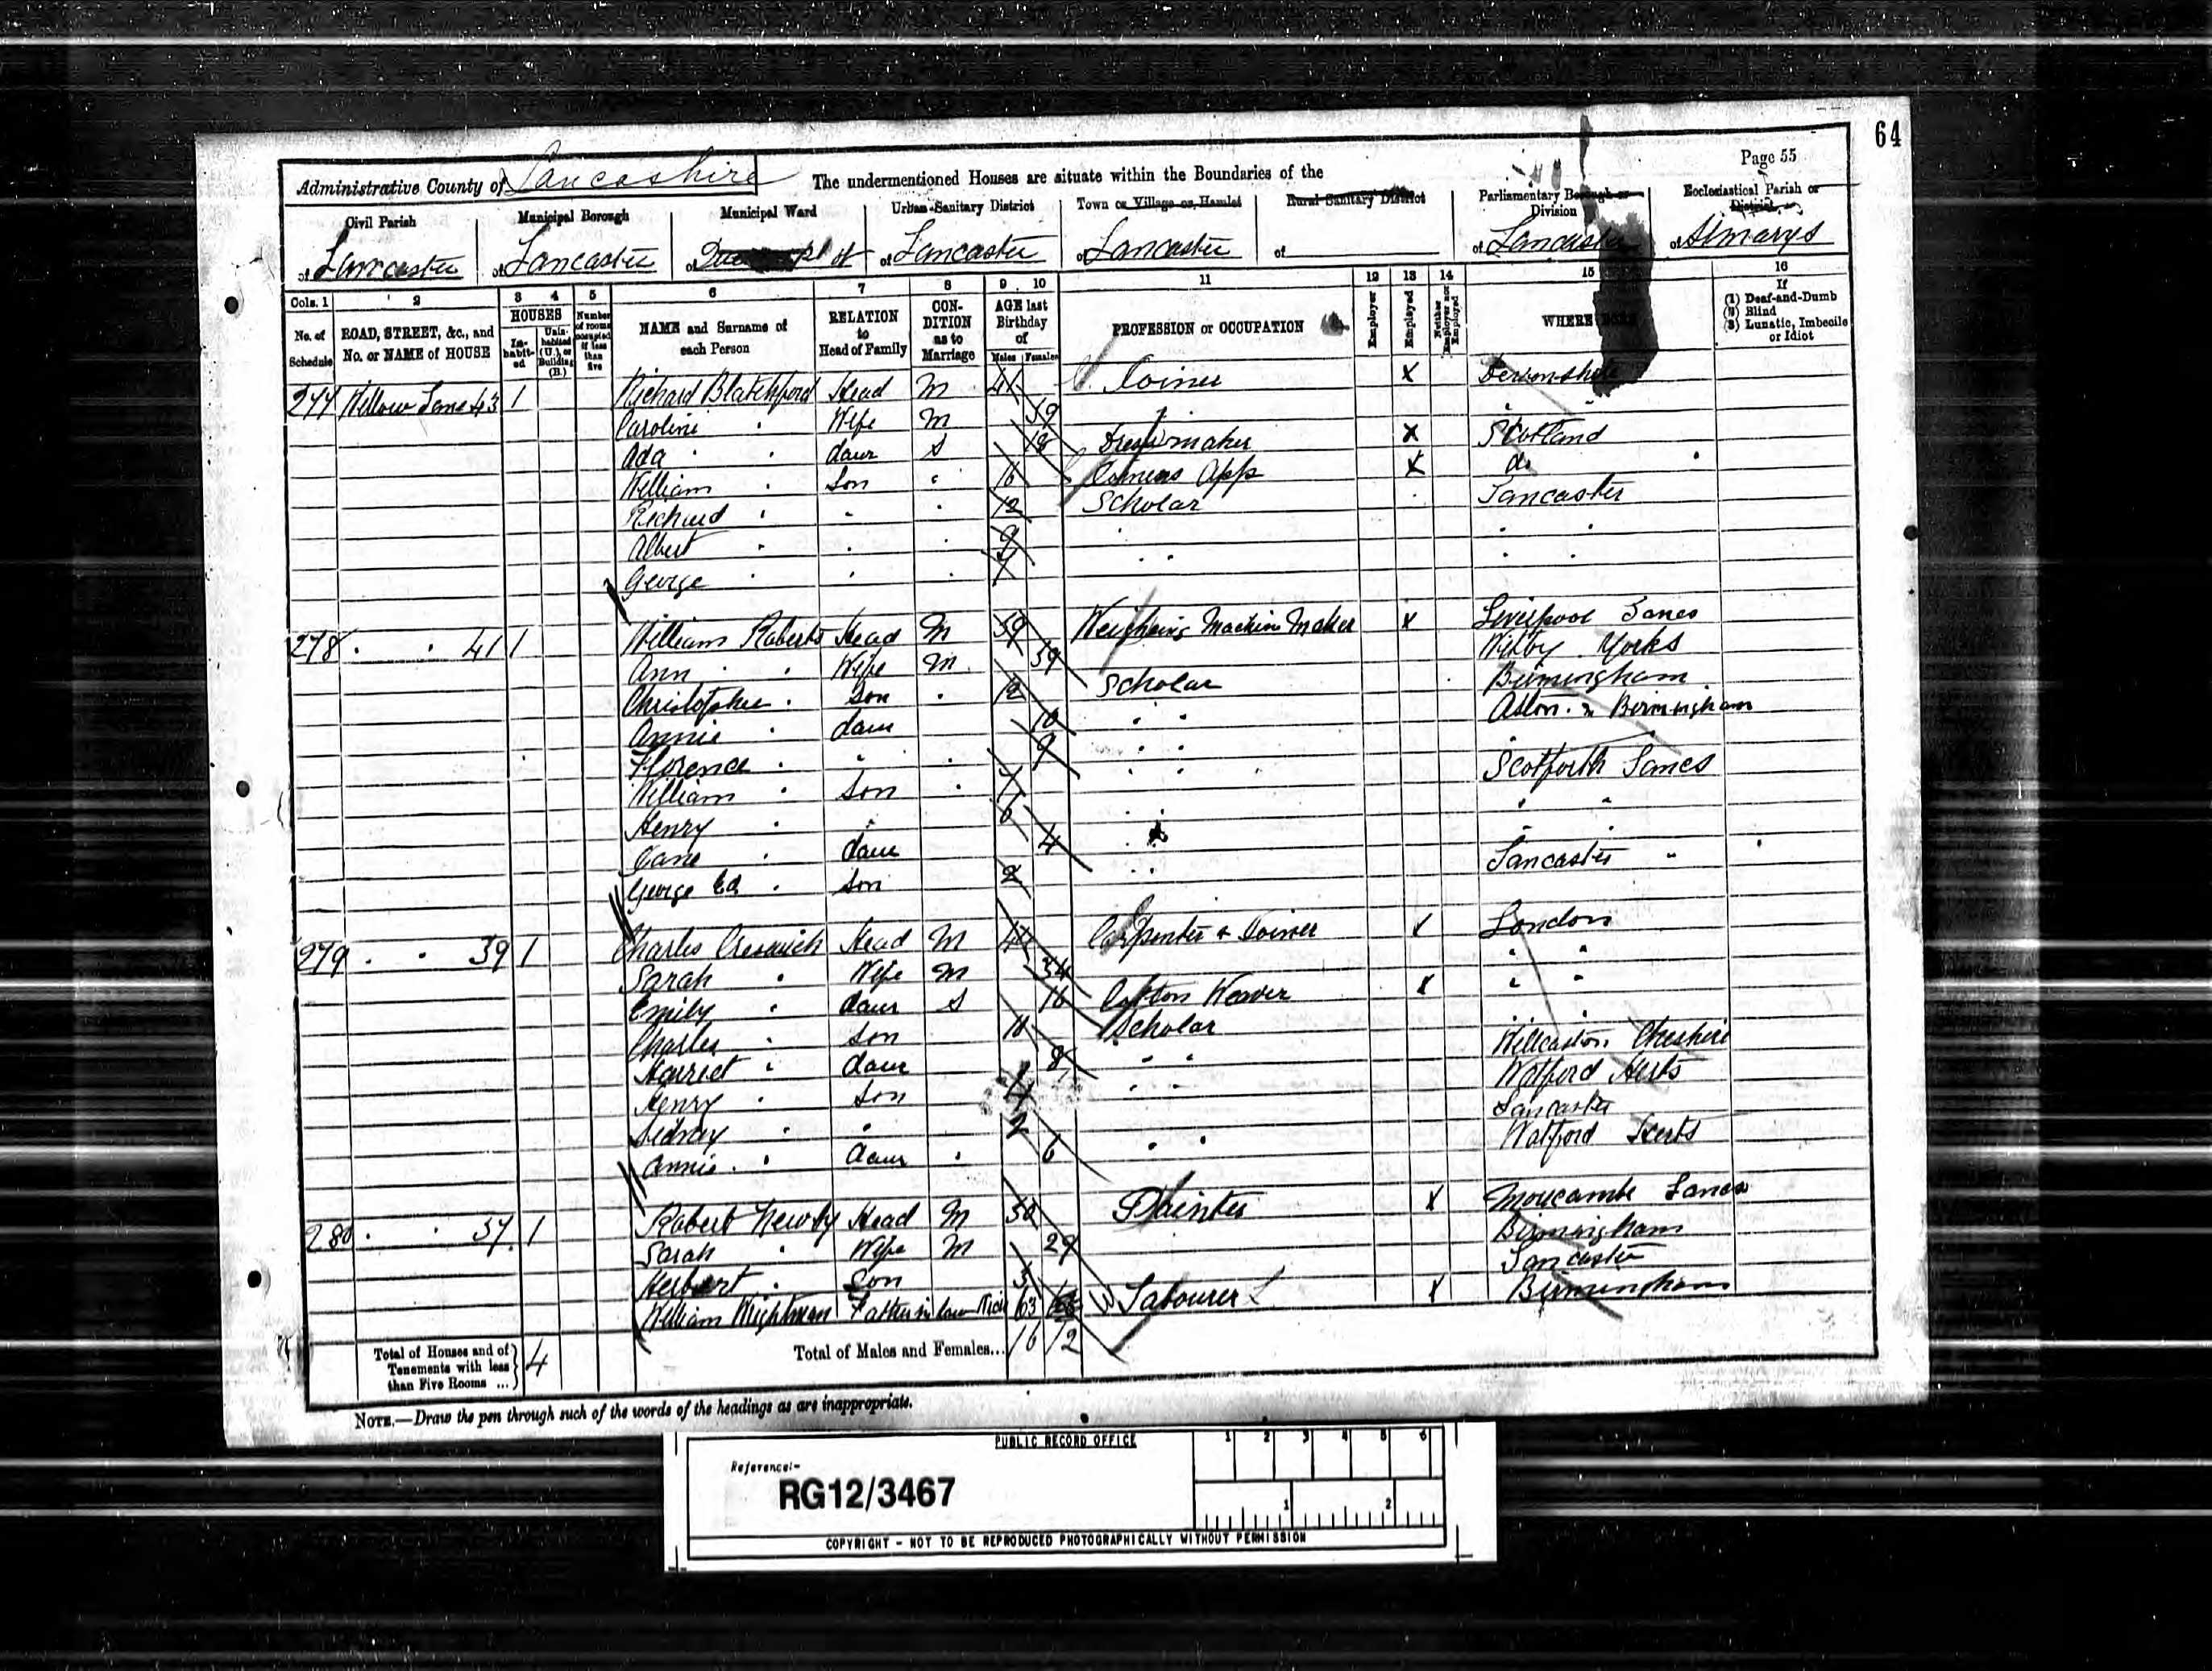 64
Page 55
Administrative County of Lancashire The undermentioned Houses are situate within the Boundaries of the
Civil Parish Municipal Borough Municipal Ward Urban Sanitary District Town or Village or Hamlet Rural Sanitary District Parliamentary Borough or Division Ecclesiastical Parish or District
of Lancaster of Lancaster of of Lancaster of Lancaster of of Lancaster of St marys
Cols. 1 2 3 4 5 6 7 8 9 10 11 12 13 14 15 16
No. of Schedule ROAD, STREET, &c., and No. or NAME of HOUSE HOUSES In-habit-ed Unin-habited (U.), or Building (B.) Number of rooms occupied if less than five NAME and Surname of each Person RELATION to Head of Family CON-DITION as to Marriage AGE last Birthday of Males Females PROFESSION or OCCUPATION Employer Employed Neither Employer nor Employed WHERE If (1) Deaf-and-Dumb (2) Blind (3) Lunatic, Imbecile or Idiot
277 Willow Lane 43 1 Richard Blatchford Head M 41 Joiner X Devonshire
Caroline " Wife M 39 " "
Ada " daur S 18 Dressmaker X Scotland
William " Son " 16 Joiners App X do
Richard " " " 12 Scholar Lancaster
Albert " " " 9 " " "
George " " " 7 " " " "
278 " " 41 1 William Roberts Head M 39 Weighing Machine Maker X Liverpool Lancs
Ann " " Wife M 39 Yorks
Christopher " Son " 12 Scholar Birmingham
Annie " daur 10 " " Aston " Birmingham
Florence " " " 9 " " "
William " Son " 7 " " Scotforth Lancs
Henry " " 6 " " "
Jane " daur 4 " "
George Ed " Son 2 " Lancaster "
279 " " 39 1 Charles Head M 44 Carpenter & Joiner X London
Sarah " Wife M 34 " "
Emily " daur S 16 Cotton Weaver X " "
Charles " Son 10 Scholar " "
Harriet " daur 8 " " Cheshire
Henry " Son 4 " " Watford Herts
Sidney " " 2 Lancaster
Annie " daur " 6 " " Watford Herts
280 " " 37 1 Robert Newby Head M 30 Painter X Morecambe Lancs
Sarah " Wife M 29 Birmingham
Herbert " Son 3 Lancaster
William Wightman Father in law Wid 63 Labourer X Birmingham
Total of Houses and of Tenements with less than Five Rooms ... 4 Total of Males and Females... 16 12
NOTE.—Draw the pen through such of the words of the headings as are inappropriate.
PUBLIC RECORD OFFICE
1 2 3 4 5 6
Reference:-
RG12/3467
1 2
COPYRIGHT - NOT TO BE REPRODUCED PHOTOGRAPHICALLY WITHOUT PERMISSION